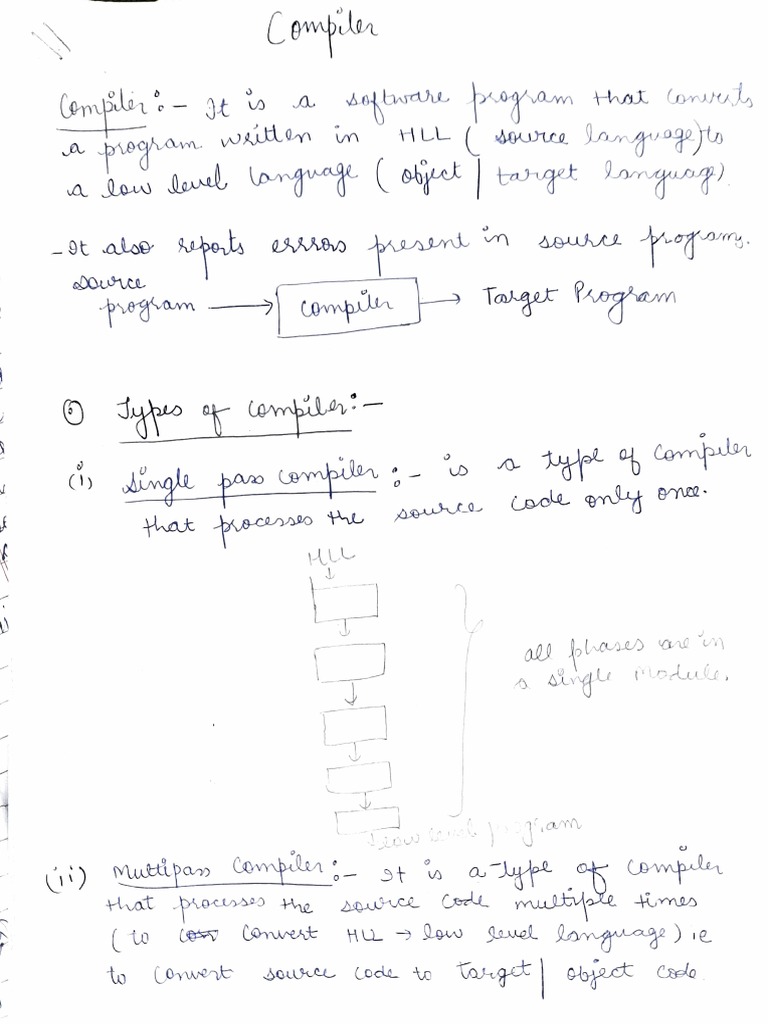 Compiler
Compiler:- It is a software program that converts
a program written in HLL ( source language) to
a low level language ( object | target language)
- It also reports errrors present in source programs.
source
program → compiler → Target Program
Types of compiler:-
(i) Single pass compiler :- is a type of compiler
that processes the source code only once.
HLL
all phases are in
a single module.
low level program
(ii) Multipass Compiler:- It is a type of compiler
that processes the source code multiple times
( to convert HLL → low level language) i.e
to convert source code to target | object code